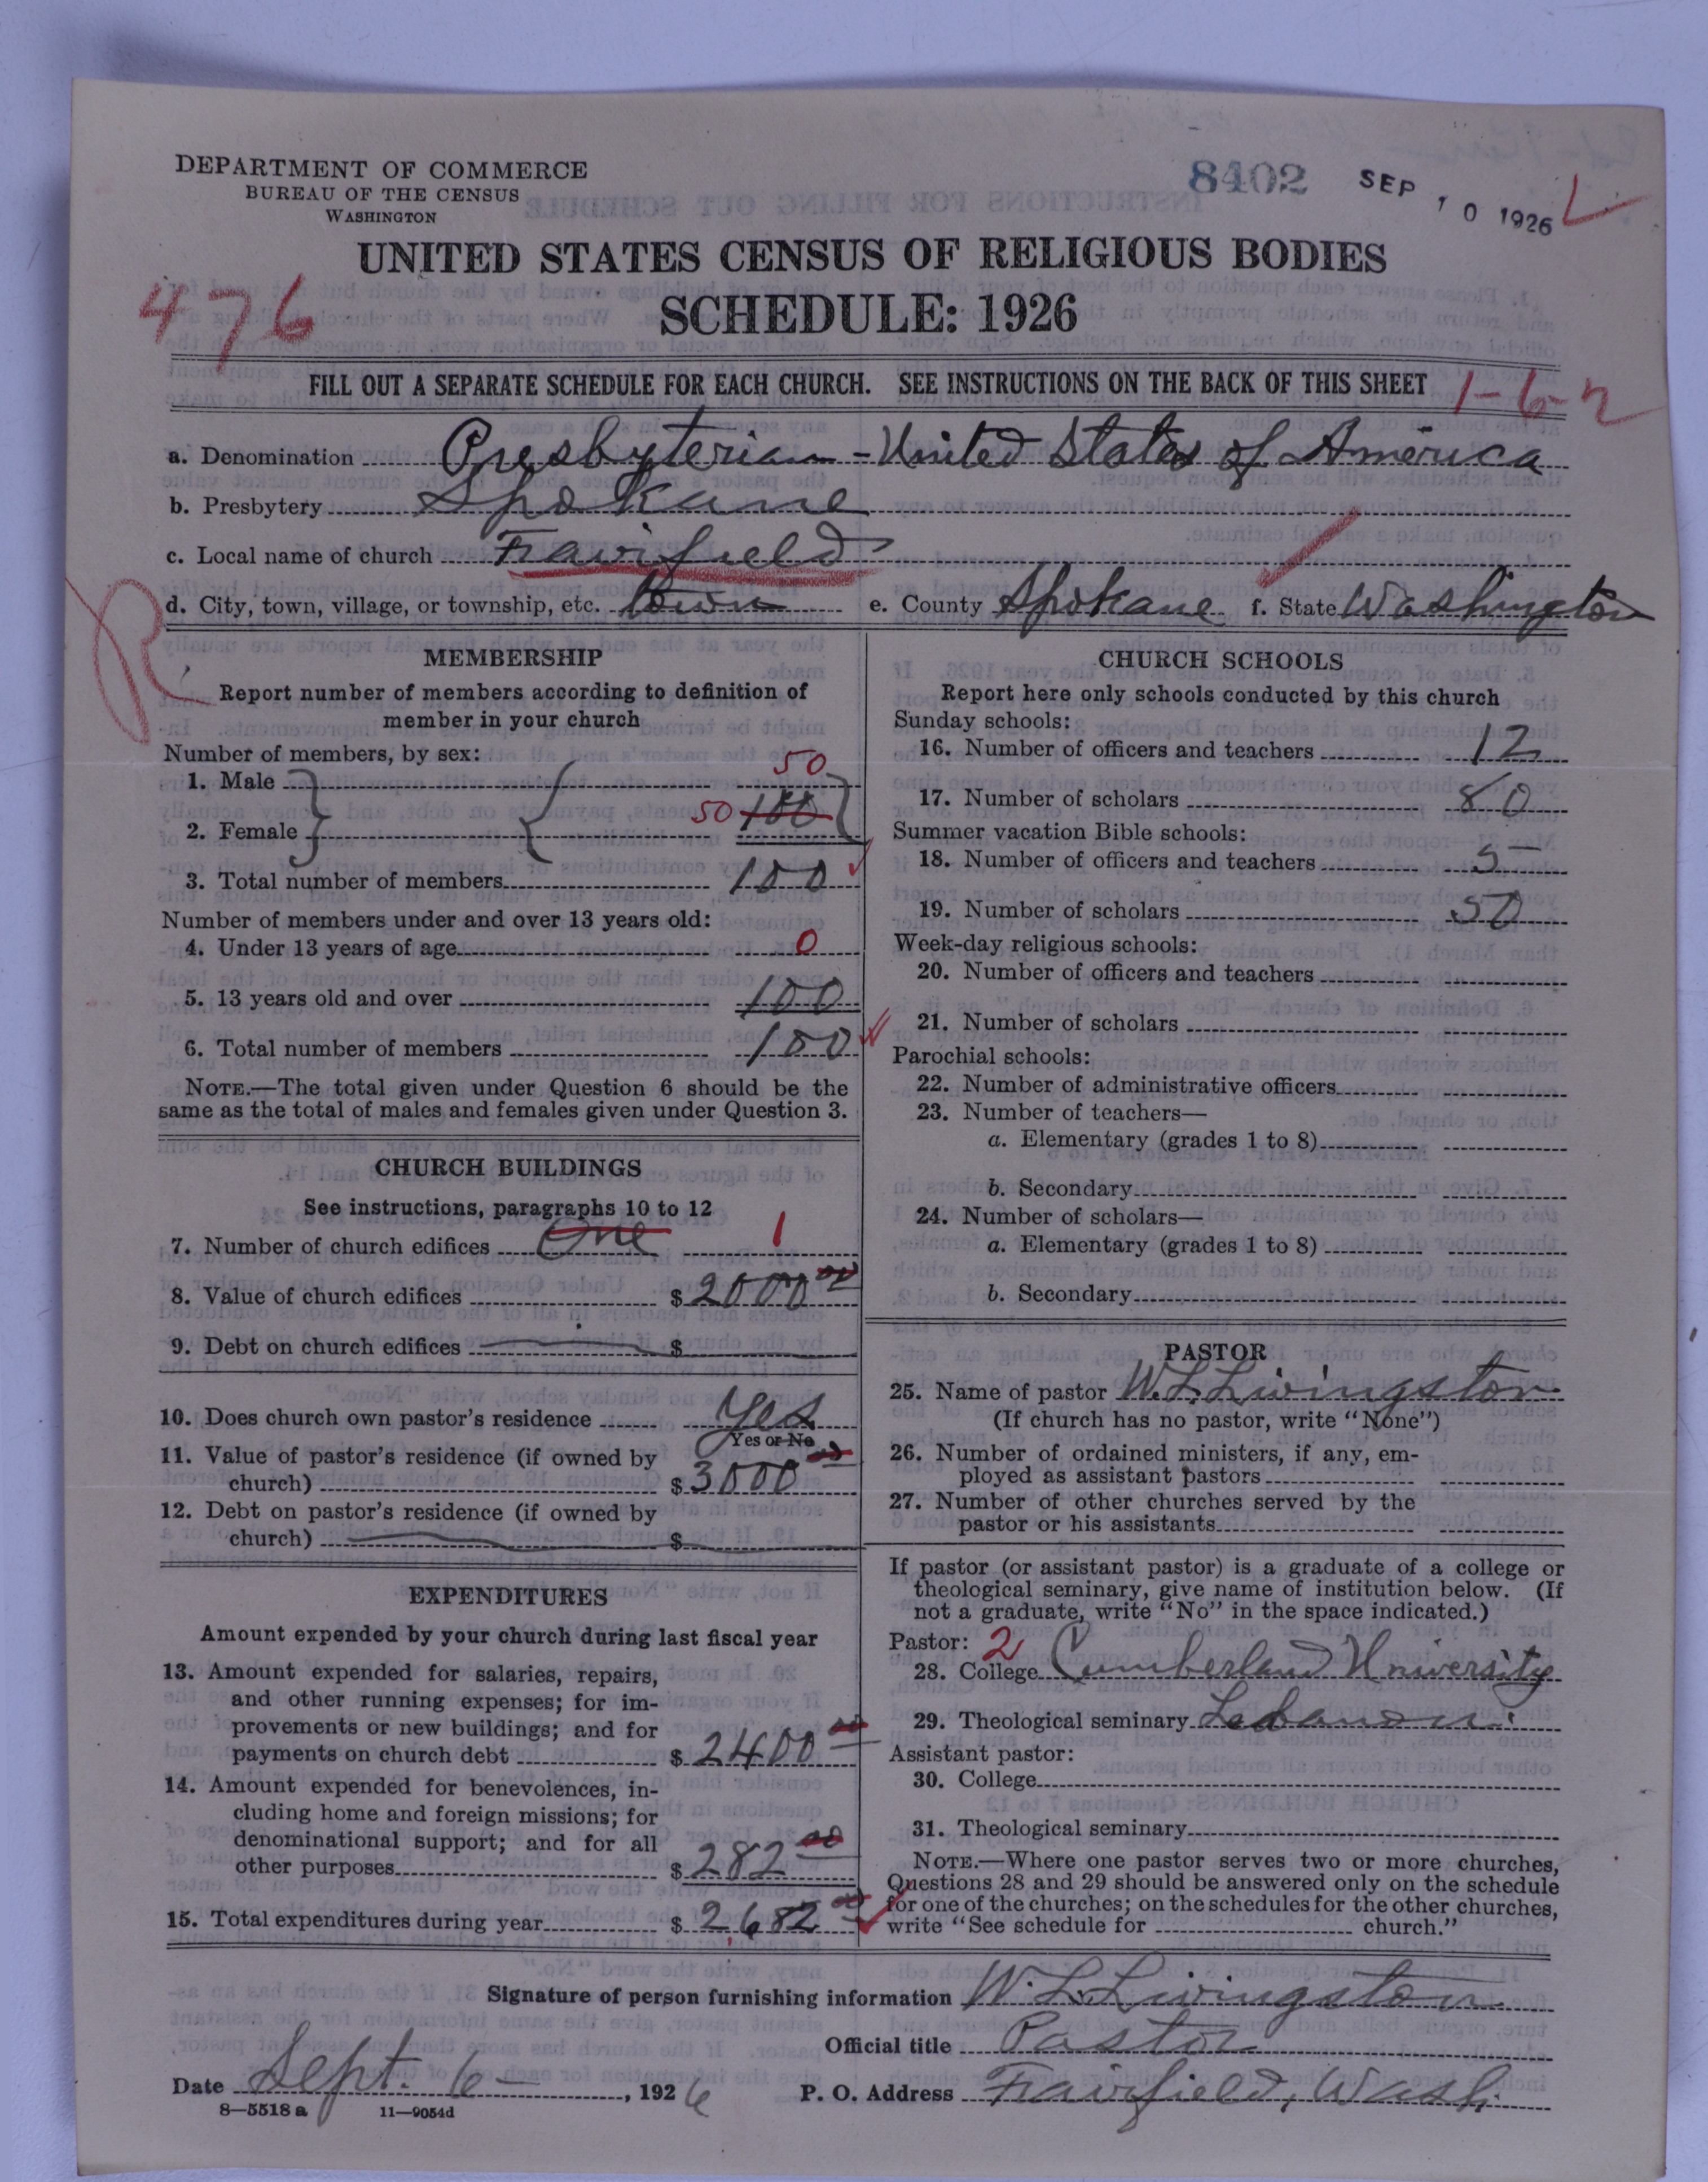 DEPARTMENT OF COMMERCE
BUREAU OF THE CENSUS
WASHINGTON
8402
SEP 10 1926
UNITED STATES CENSUS OF RELIGIOUS BODIES
476
SCHEDULE: 1926
FILL OUT A SEPARATE SCHEDULE FOR EACH CHURCH. SEE INSTRUCTIONS ON THE BACK OF THIS SHEET
1-6-2
a. Denomination Presbyterian - United States of America
b. Presbytery Spokane
c. Local name of church Fairfield
d. City, town, village, or township, etc. town e. County Spokane f. State Washington
R
MEMBERSHIP
Report number of members according to definition of
member in your church
Number of members, by sex:
1. Male 50
2. Female 50 100
3. Total number of members 100
Number of members under and over 13 years old:
4. Under 13 years of age 0
5. 13 years old and over 100
6. Total number of members 100
NOTE.—The total given under Question 6 should be the
same as the total of males and females given under Question 3.
CHURCH BUILDINGS
See instructions, paragraphs 10 to 12
7. Number of church edifices One 1
8. Value of church edifices $ 2000 00
9. Debt on church edifices $
10. Does church own pastor's residence Yes
Yes or No
11. Value of pastor's residence (if owned by
church) $ 3000 00
12. Debt on pastor's residence (if owned by
church) $
EXPENDITURES
Amount expended by your church during last fiscal year
13. Amount expended for salaries, repairs,
and other running expenses; for im-
provements or new buildings; and for
payments on church debt $ 2400 00
14. Amount expended for benevolences, in-
cluding home and foreign missions; for
denominational support; and for all
other purposes $ 282 00
15. Total expenditures during year $ 2,682 00
CHURCH SCHOOLS
Report here only schools conducted by this church
Sunday schools:
16. Number of officers and teachers 12
17. Number of scholars 80
Summer vacation Bible schools:
18. Number of officers and teachers 5
19. Number of scholars 50
Week-day religious schools:
20. Number of officers and teachers
21. Number of scholars
Parochial schools:
22. Number of administrative officers
23. Number of teachers—
a. Elementary (grades 1 to 8)
b. Secondary
24. Number of scholars—
a. Elementary (grades 1 to 8)
b. Secondary
PASTOR
25. Name of pastor W. L. Livingston
(If church has no pastor, write "None")
26. Number of ordained ministers, if any, em-
ployed as assistant pastors
27. Number of other churches served by the
pastor or his assistants
If pastor (or assistant pastor) is a graduate of a college or
theological seminary, give name of institution below. (If
not a graduate, write "No" in the space indicated.)
Pastor: 2
28. College Cumberland University
29. Theological seminary Lebanon
Assistant pastor:
30. College
31. Theological seminary
NOTE.—Where one pastor serves two or more churches,
Questions 28 and 29 should be answered only on the schedule
for one of the churches; on the schedules for the other churches,
write "See schedule for church."
Signature of person furnishing information W. L. Livingston
Official title Pastor
Date Sept. 6, 1926 P. O. Address Fairfield, Wash.
8—5518 a 11—9054d